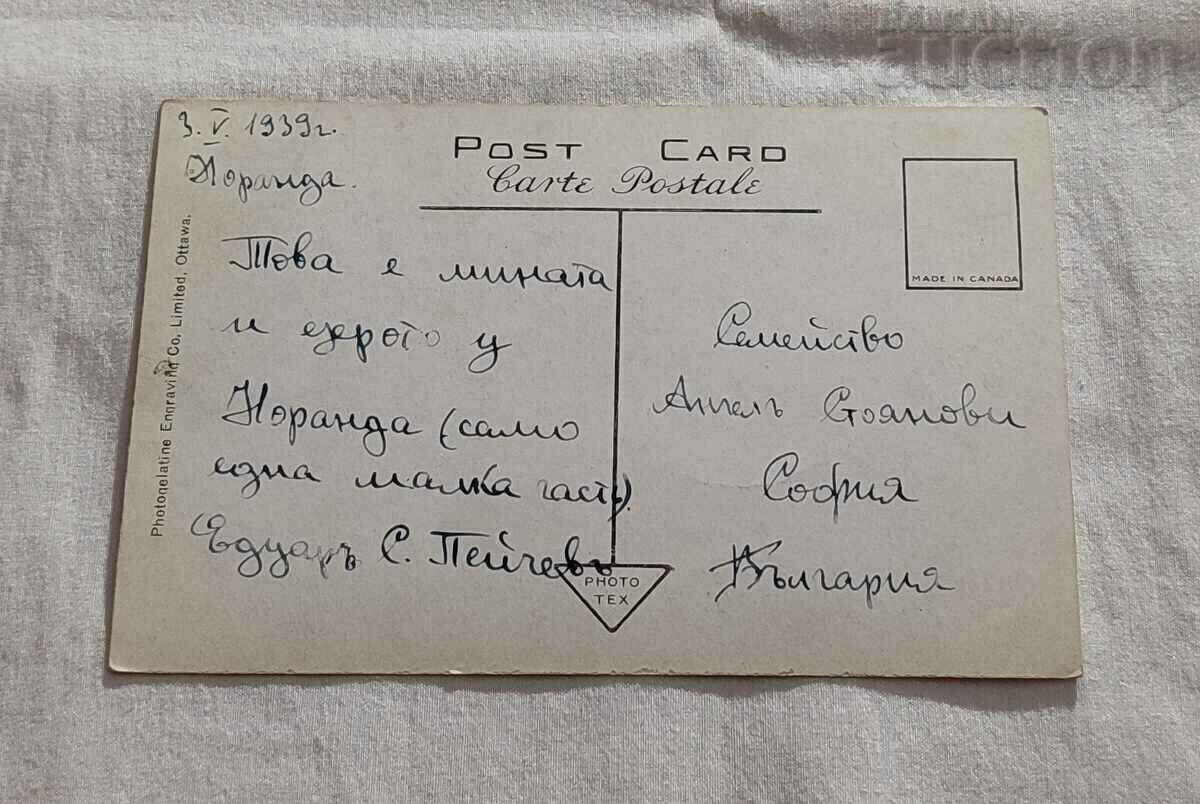 BALKAN
auction
3. V. 1939г.
Норанда.
POST CARD
Carte Postale
MADE IN CANADA
Photogelatine Engraving Co, Limited, Ottawa.
Това е мината
и езерото у
Норанда (само
една малка часть).
Едуаръ С. Пейчевъ
Семейство
Ангелъ Стоянови
София
България
PHOTO
TEX